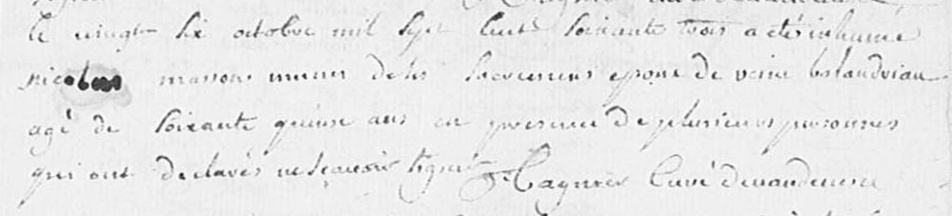 le vingt six octobre mil sept cents soixante trois a eté inhumé
nicolas masson munis de ses sacremens epoux de
agé de soixante quinse ans en presence de plusieurs personnes
qui ont declarés ne sçavoir signer curé de vandeuvre